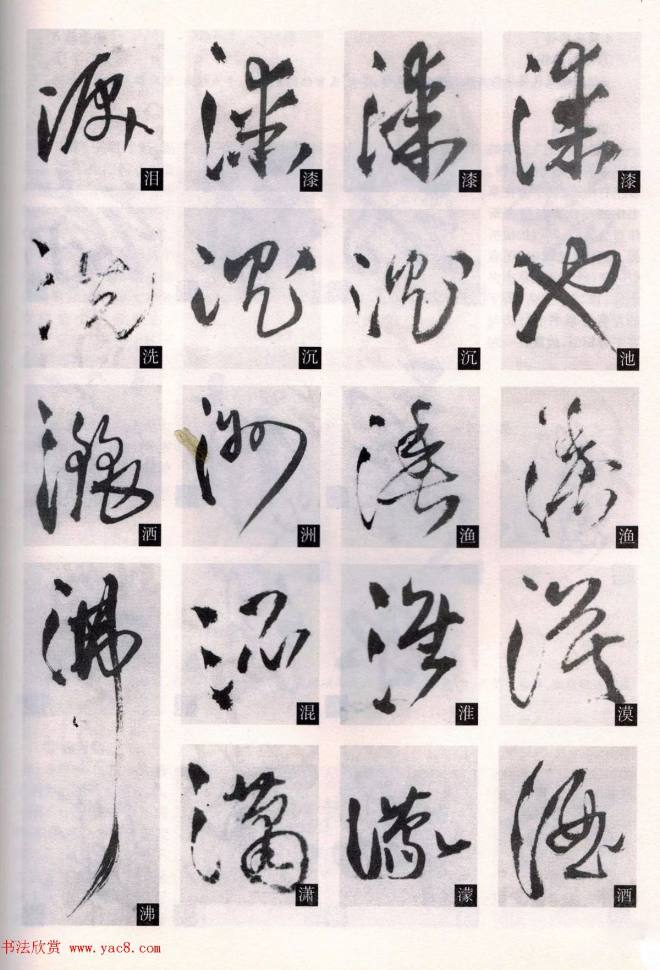 泪 漆 漆 漆
洗 沉 沉 池
洒 洲 渔 渔
混 淮 漠
沸 潇 濛 酒
书法欣赏 www.yac8.com